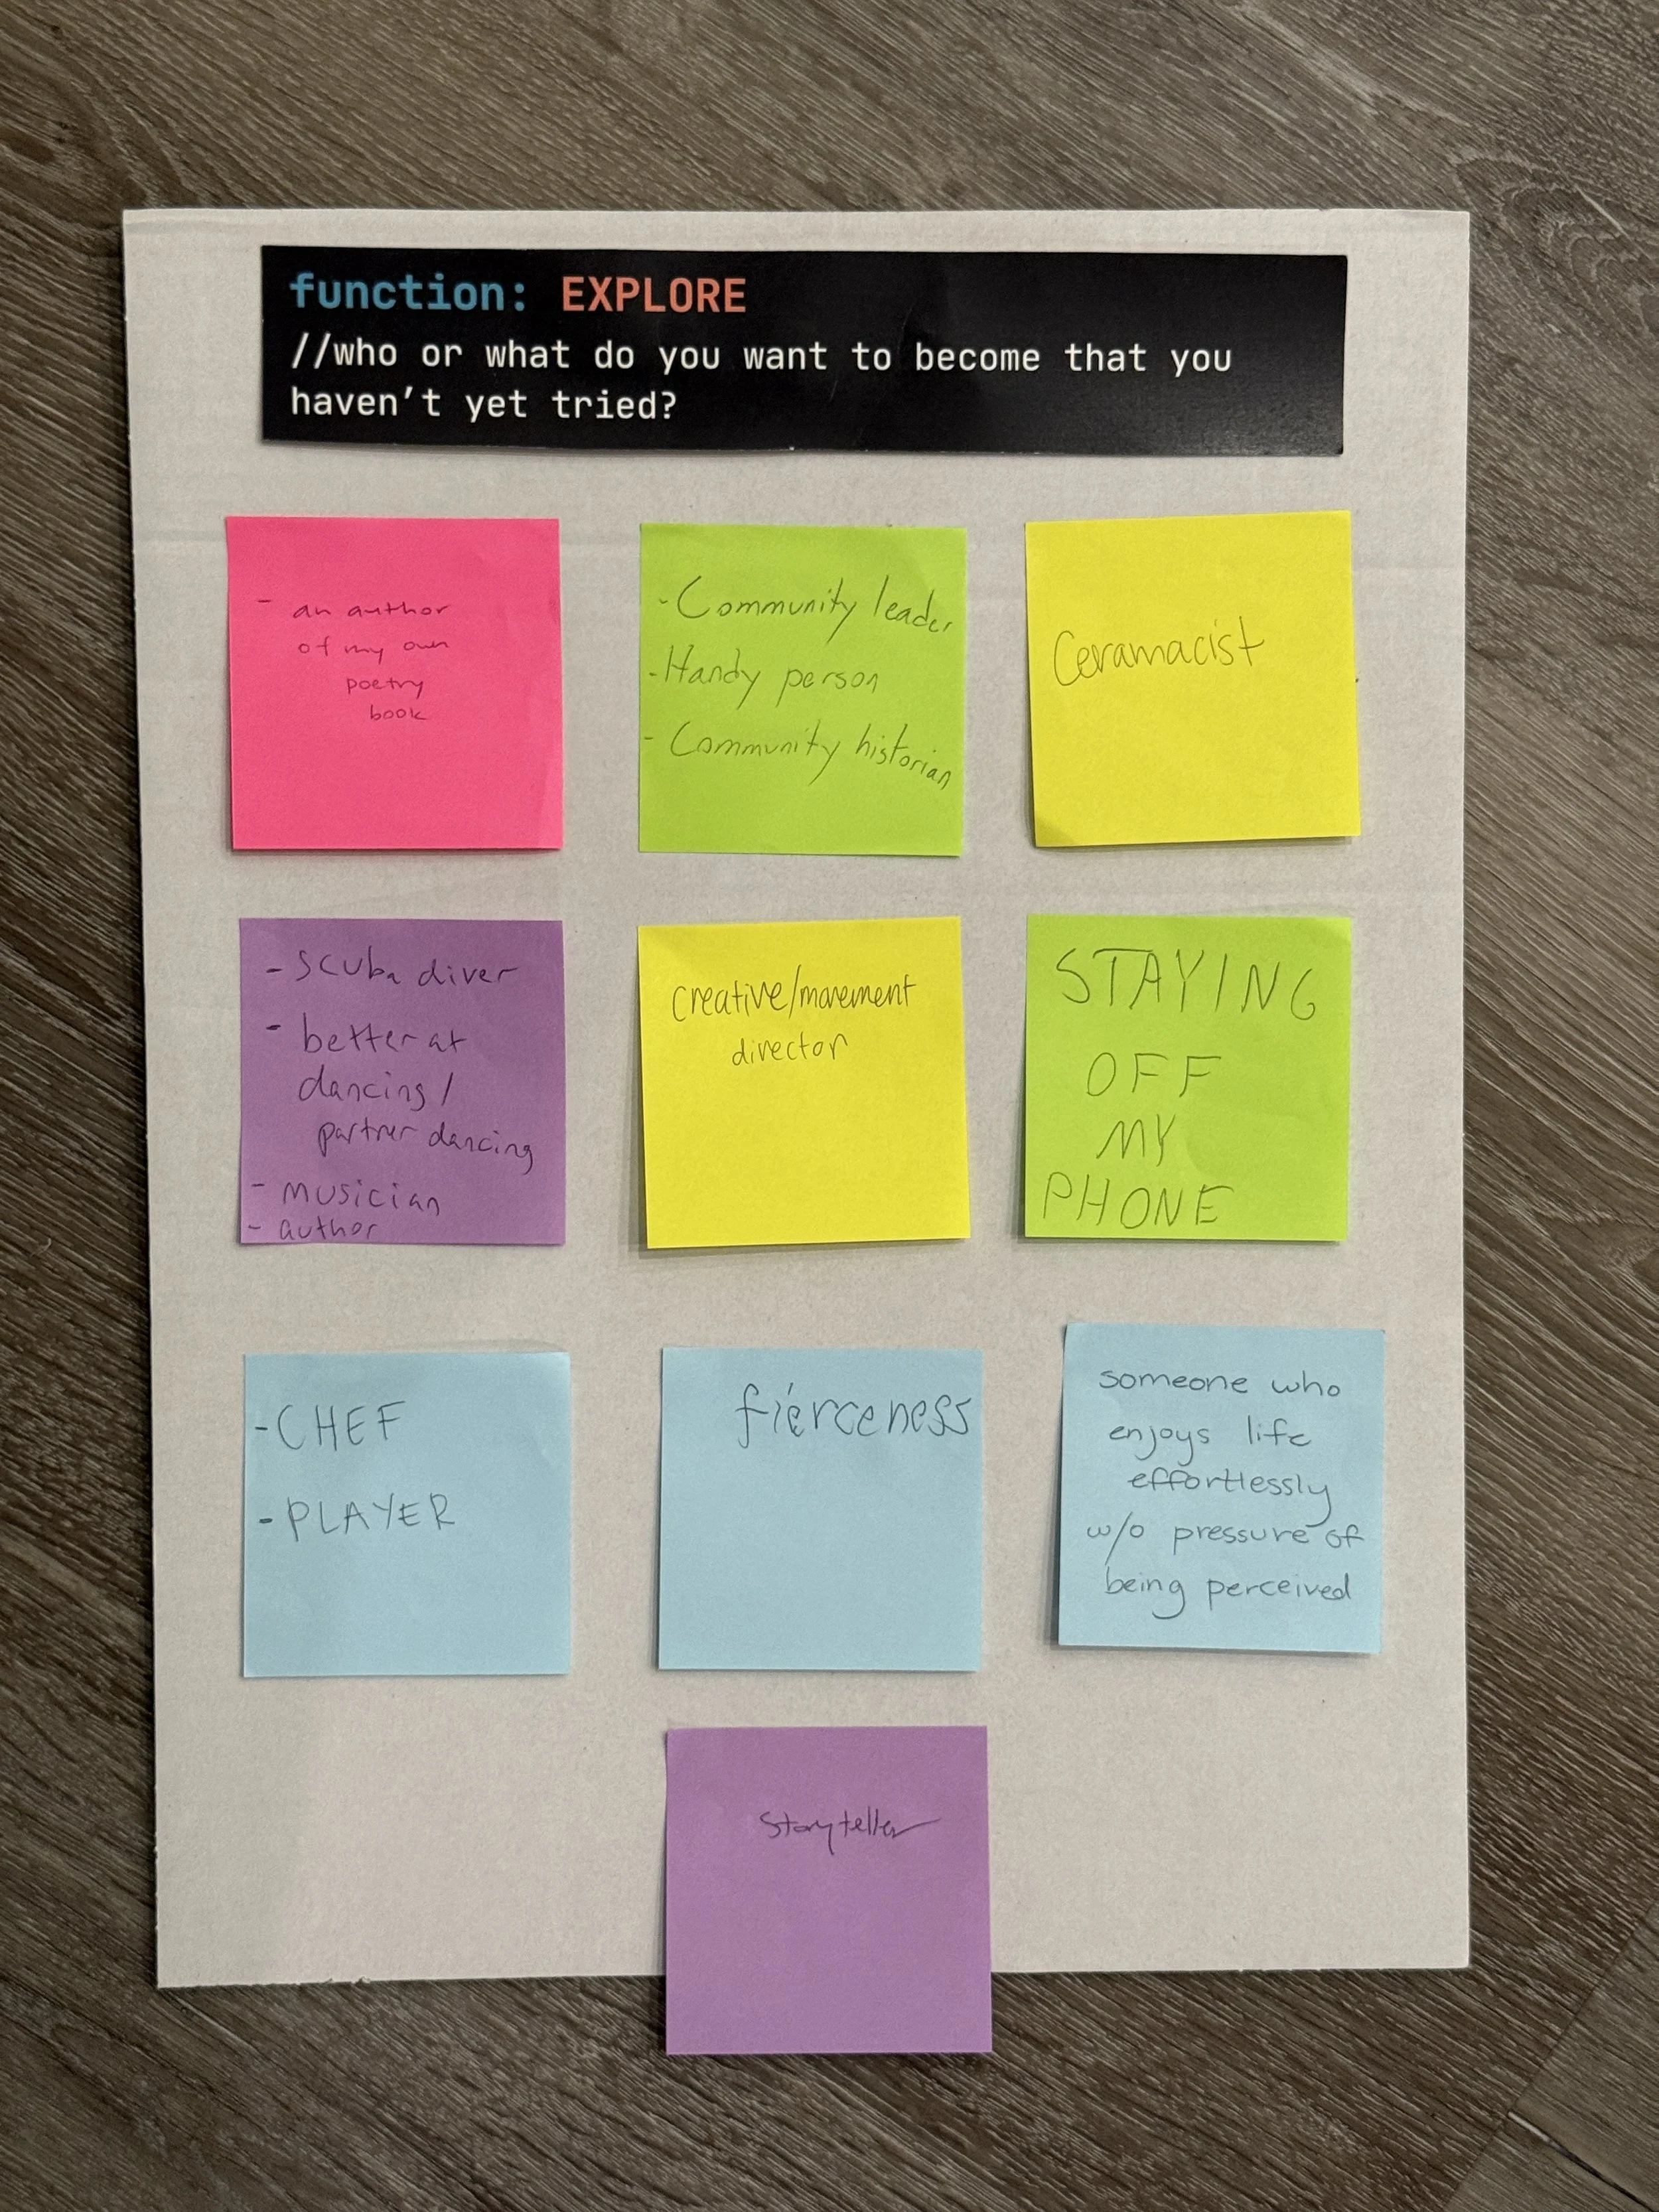 function: EXPLORE
//who or what do you want to become that you
haven't yet tried?
- an author
of my own
poetry
book
- Community leader
- Handy person
- Community historian
Ceramacist
- scuba diver
- better at
dancing/
partner dancing
- musician
- author
creative/movement
director
STAYING
OFF
MY
PHONE
- CHEF
- PLAYER
fierceness
someone who
enjoys life
effortlessly
w/o pressure of
being perceived
Storyteller